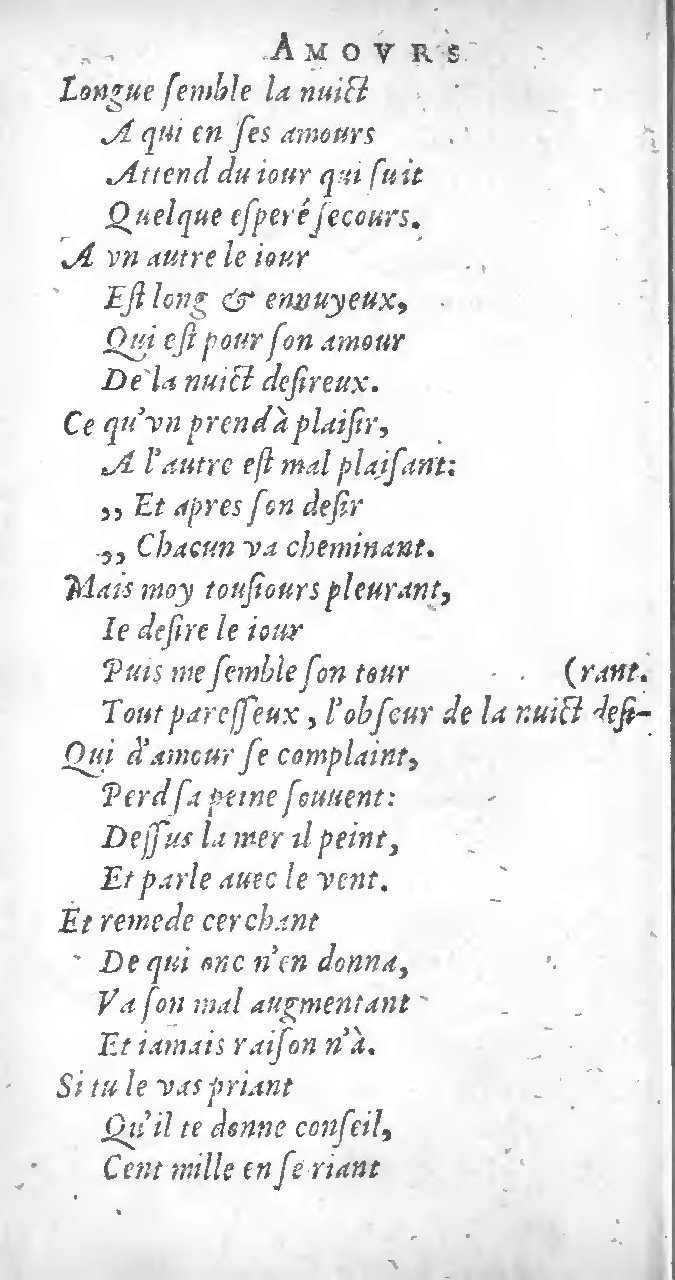 AMOVRS
Longue ſemble la nuict
A qui en ſes amours
Attend du iour qui ſuit
Quelque eſperé ſecours.
A vn autre le iour
Eſt long & ennuyeux,
Qui eſt pour ſon amour
De la nuict deſireux.
Ce qu'vn prend à plaiſir,
A l'autre eſt mal plaiſant:
,, Et apres ſon deſir
,, Chacun va cheminant.
Mais moy touſiours pleurant,
Ie deſire le iour
Puis me ſemble ſon tour (rant.
Tout pareſſeux, l'obſcur de la nuict deſi-
Qui d'amour ſe complaint,
Perd ſa peine ſouuent:
Deſſus la mer il peint,
Et parle auec le vent.
Et remede cerchant
De qui onc n'en donna,
Va ſon mal augmentant
Et iamais raiſon n'à.
Si tu le vas priant
Qu'il te donne conſeil,
Cent mille en ſe riant